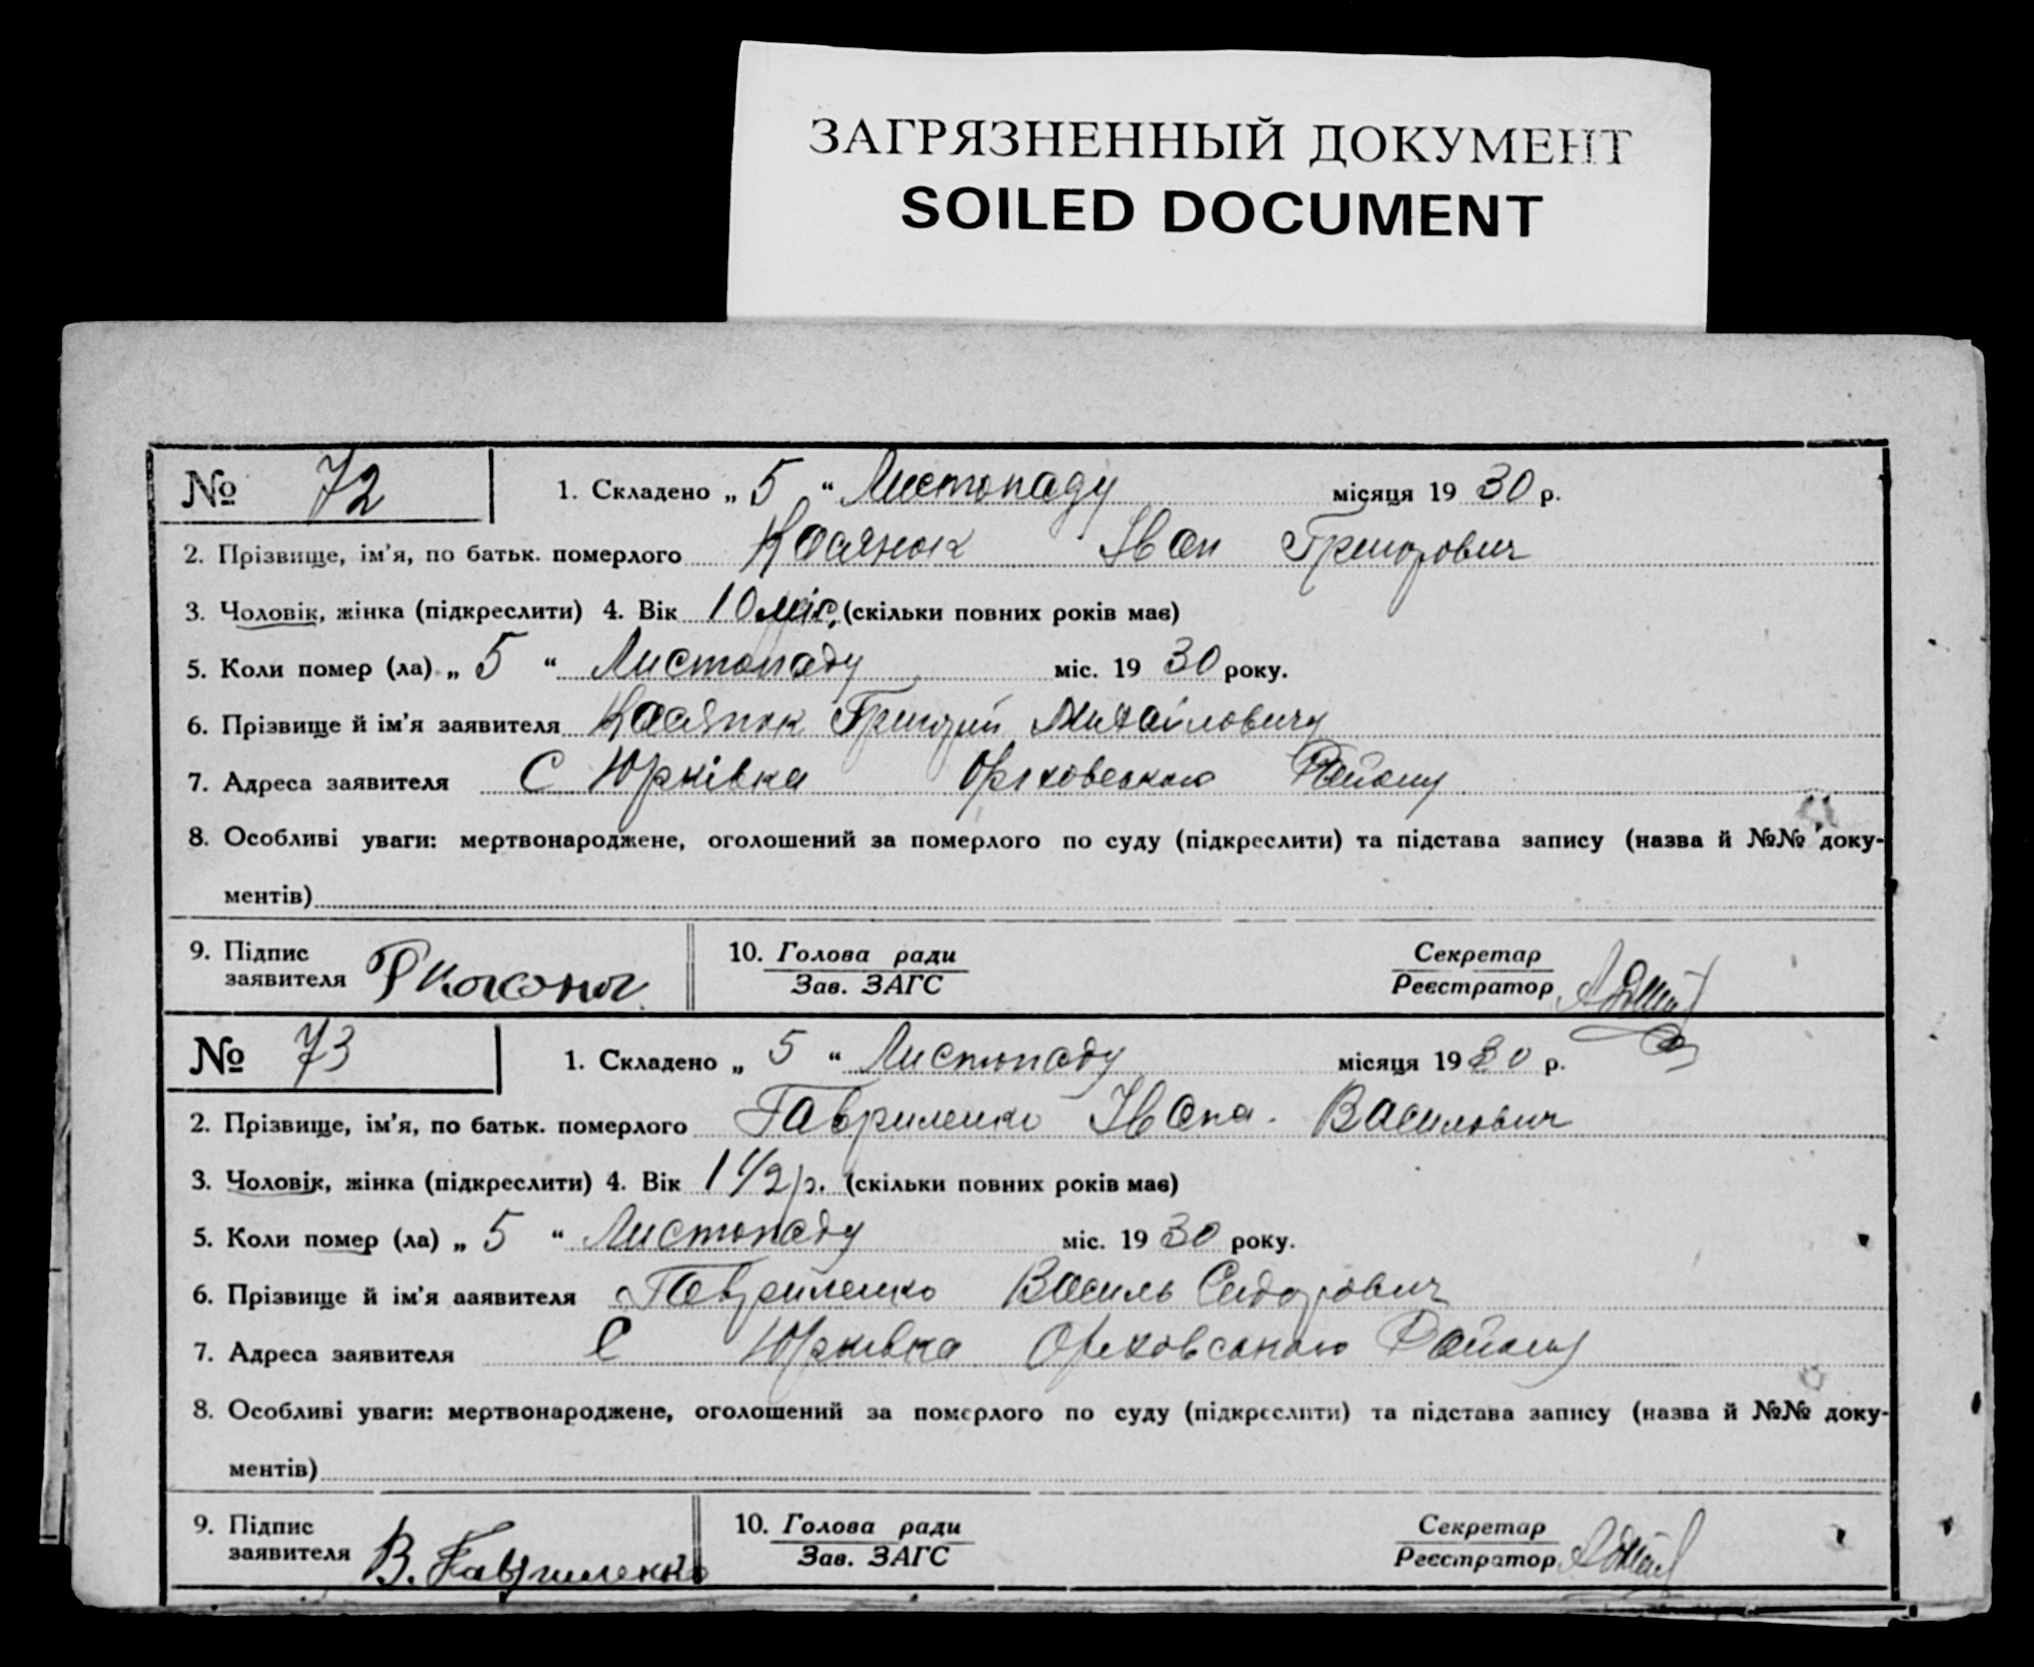 ЗАГРЯЗНЕННЫЙ ДОКУМЕНТ
SOILED DOCUMENT
№ 72 1. Складено „ 5 “ Листопаду місяця 19 30 р.
2. Прізвище, ім'я, по батьк. померлого Касянюк Іван Григорович
3. Чоловік, жінка (підкреслити) 4. Вік 10 міс. (скільки повних років має)
5. Коли помер (ла) „ 5 “ Листопаду міс. 19 30 року.
6. Прізвище й ім'я заявителя Касянюк Григорій Михайловичу
7. Адреса заявителя С Юрківка Оріховського Району
8. Особливі уваги: мертвонароджене, оголошений за померлого по суду (підкреслити) та підстава запису (назва й №№ доку-
ментів)
9. Підпис заявителя 10. Голова ради Секретар
Зав. ЗАГС Реєстратор
№ 73 1. Складено „ 5 “ Листопаду місяця 19 30 р.
2. Прізвище, ім'я, по батьк. померлого Гавриленко Івана Василович
3. Чоловік, жінка (підкреслити) 4. Вік 1 1/2 р. (скільки повних років має)
5. Коли помер (ла) „ 5 “ Листопаду міс. 19 30 року.
6. Прізвище й ім'я заявителя Гавриленко Василь Сидорович
7. Адреса заявителя С Юрківка Ореховського Району
8. Особливі уваги: мертвонароджене, оголошений за померлого по суду (підкреслити) та підстава запису (назва й №№ доку-
ментів)
9. Підпис заявителя В. Гавриленко 10. Голова ради Секретар
Зав. ЗАГС Реєстратор